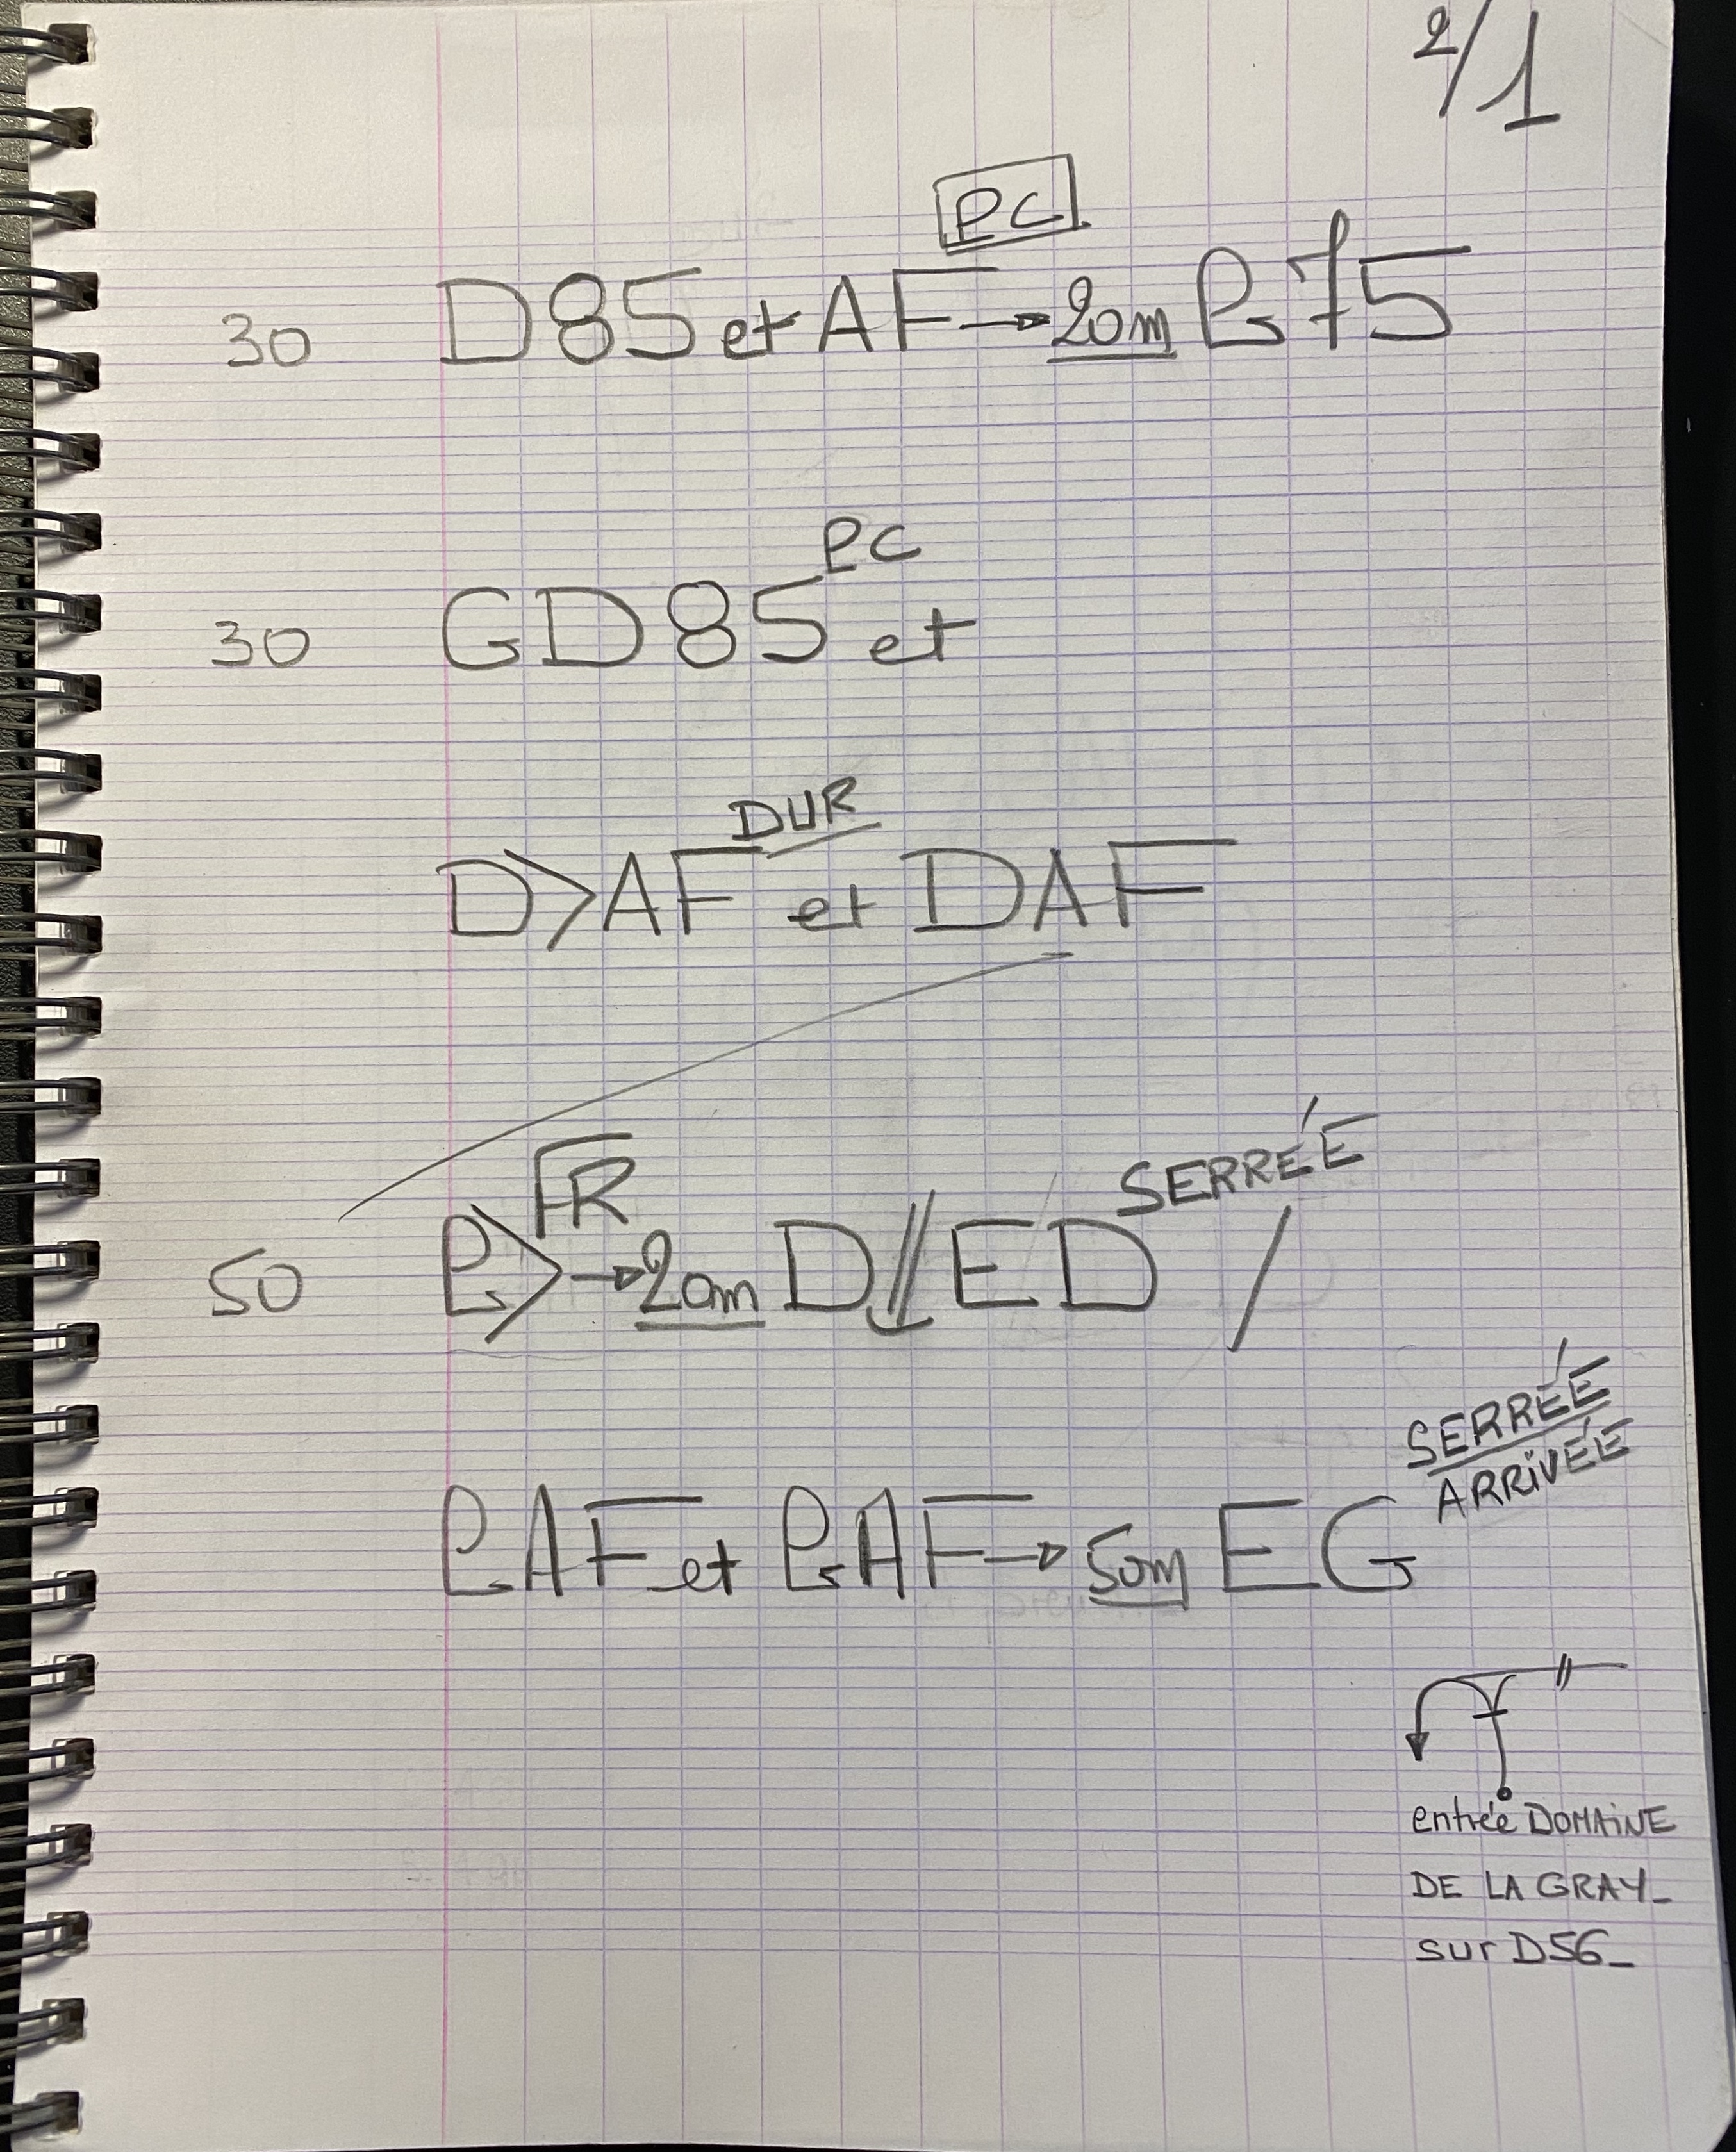 2/1
PC
30 D85 et AF → 20m PG 75
PC
30 GD85 et
DUR
D>AF et DAF
FR SERRÉE
50 PG> → 20m D//ED /
SERRÉE
ARRIVÉE
PG AF et PG AF → 50m EG
entrée DOMAINE
DE LA GRAY_
sur D56_